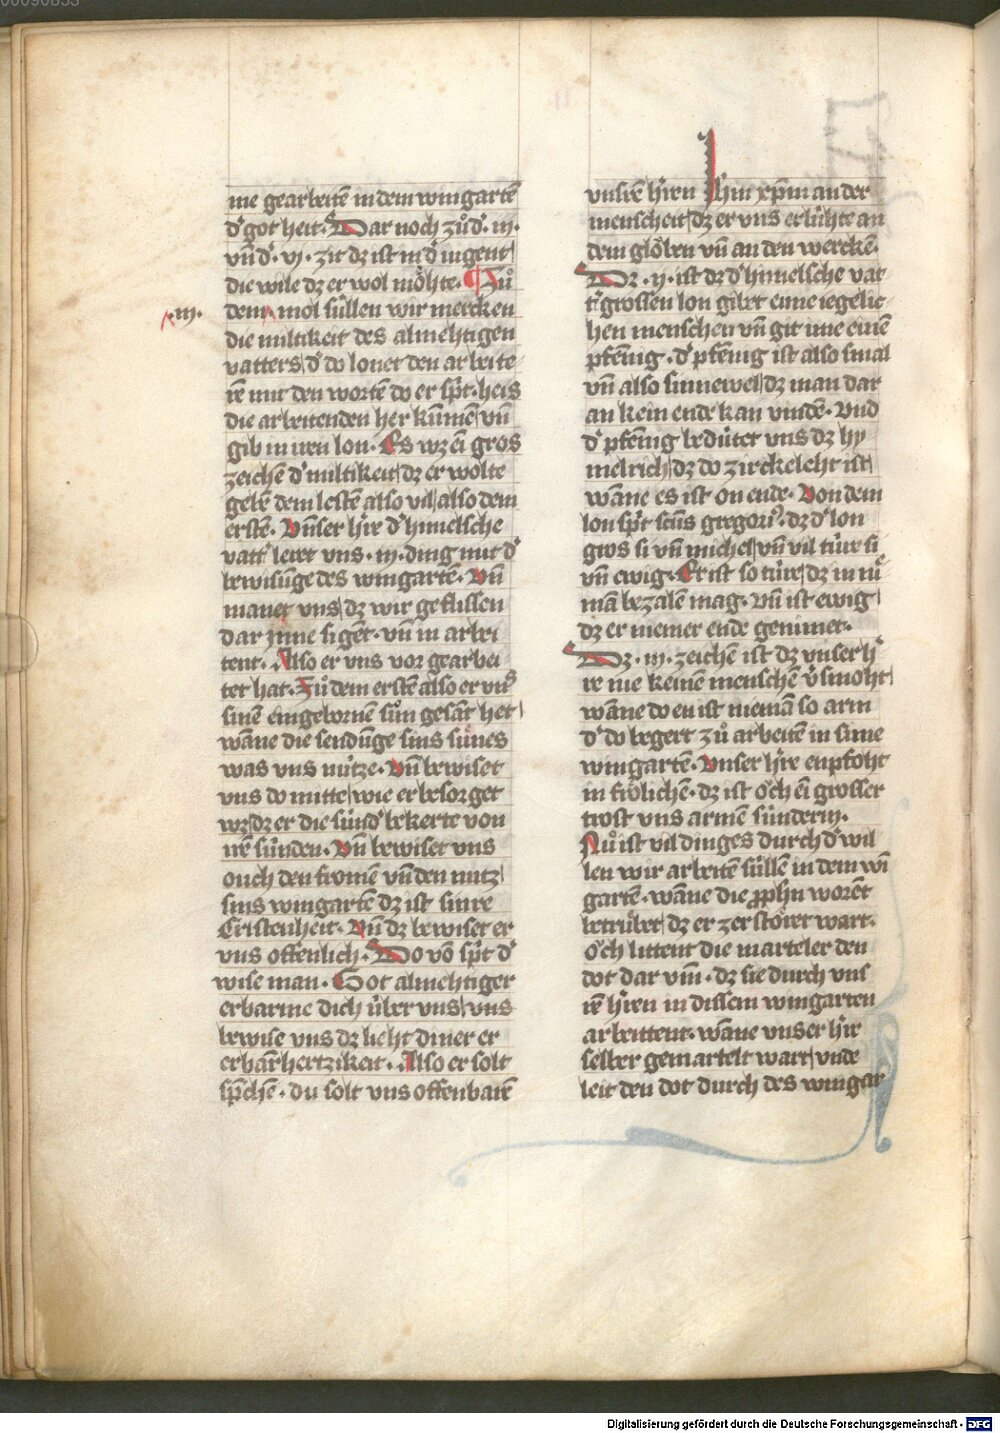 me gearbeitē in dem wingartē
d᾽ got heit. Dar noch zůd᾽. iij.
vn̄d᾽. vj. zit dz ist in d᾽ iugent
die wile dz er wol mo̊hte. ¶ Zů
.iij. dem mol süllen wir mercken
die miltikeit des almehtigen
vatters d᾽ do lonet den arbeite
rē mit den wortē do er sp̄t. heis
die arbeitenden her kūmē vn̄
gib in iren lon. Es wz ei̅ gros
zeichē d᾽ miltikeit dz er wolte
gebē dem lestē also vil also dem
erstē. Vn̄ser h᾽re d᾽ himelsche
vatt᾽ leret vns. iij. ding mit d᾽
bewisūge des wingartē. Vn̄
manet vns dz wir geflissen
dar inne sigēt. vn̄ in arbei
tent. Also er vns vor gearbei
tet hat. Zů dem erstē also er vns
sinē eingebornē sůn gesāt het
wāne die sendūge sins sunes
was vns nütze. Vn̄ bewiset
vns do mitte wie er besorget
wz dz er die sünd᾽ bekerte von
irē sünden. Vn̄ bewiset vns
ouch den fromē vn̄ den nutz
sins wingartē dz ist sinre
Cristenheit. Vn̄ dz bewiset er
vns offenlich. Do vō sp̄t d᾽
wise man. Got almehtiger
erbarme dich über vns vnd
bewise vns dz lieht diner er
erbārhertzikeit. Also er solt
sp̄chē. du solt vns offenbarē
vnsrē h᾽ren Jhm xp̄m an der
menscheit dz er vns erlühte an
dem glo̊ben vn̄ an den werckē.
Dz. ij. ist dz d᾽ himelsche vat
t᾽ grossen lon gibet eime iegelic
hen menschen vn̄ git ime einē
pfēnig. d᾽ pfēnig ist also smal
vn̄ also sinnewel dz man dar
an kein ende kan vindē. Vnd
d᾽ pfēnig bedütet vns dz hy
melrich dz do zirckeleht ist
wāne es ist on ende. Von dem
lon sp̄t sc̄us gregori᾽. dz d᾽ lon
gros si vn̄ michel vn̄ vil türe si
vn̄ ewig. Er ist so türe dz in nů
mā bezalē mag. Vn̄ ist ewig
dz er niemer ende genimet.
Dz. iij. zeichē ist dz vnser h᾽
re nie keinē menschē v᾽smoht
wāne do en ist niemā so arm
d᾽ do begert zů arbeitē in sime
wingartē. Vnser h᾽re enpfoht
in frölichē. dz ist o̊ch ei̅ grosser
trost vns armē sünderin.
Nů ist vil dinges durch d᾽ wil
len wir arbeitē süllē in dem wī
gartē. wāne die p̄phn worēt
betrübet dz er zerstöret wart.
o̊ch littent die marteler den
dot dar vm̄. dz sie durch vns
rē h᾽ren in dissem wingarten
arbeittent. wāne vnser h᾽re
selber gemartelt wart vnde
leit den dot durch des wingar
Digitalisierung gefördert durch die Deutsche Forschungsgemeinschaft - DFG